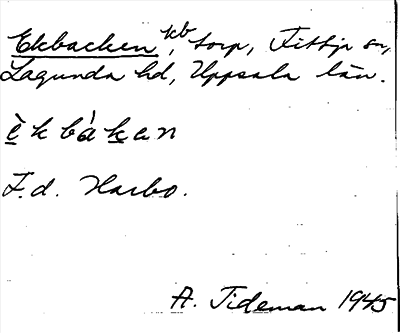 Ekbacken, torp, Fittja sn,
Lagunda hd, Uppsala län.
ὲkbàkan
F.d. Harbo.
A. Tideman 1945